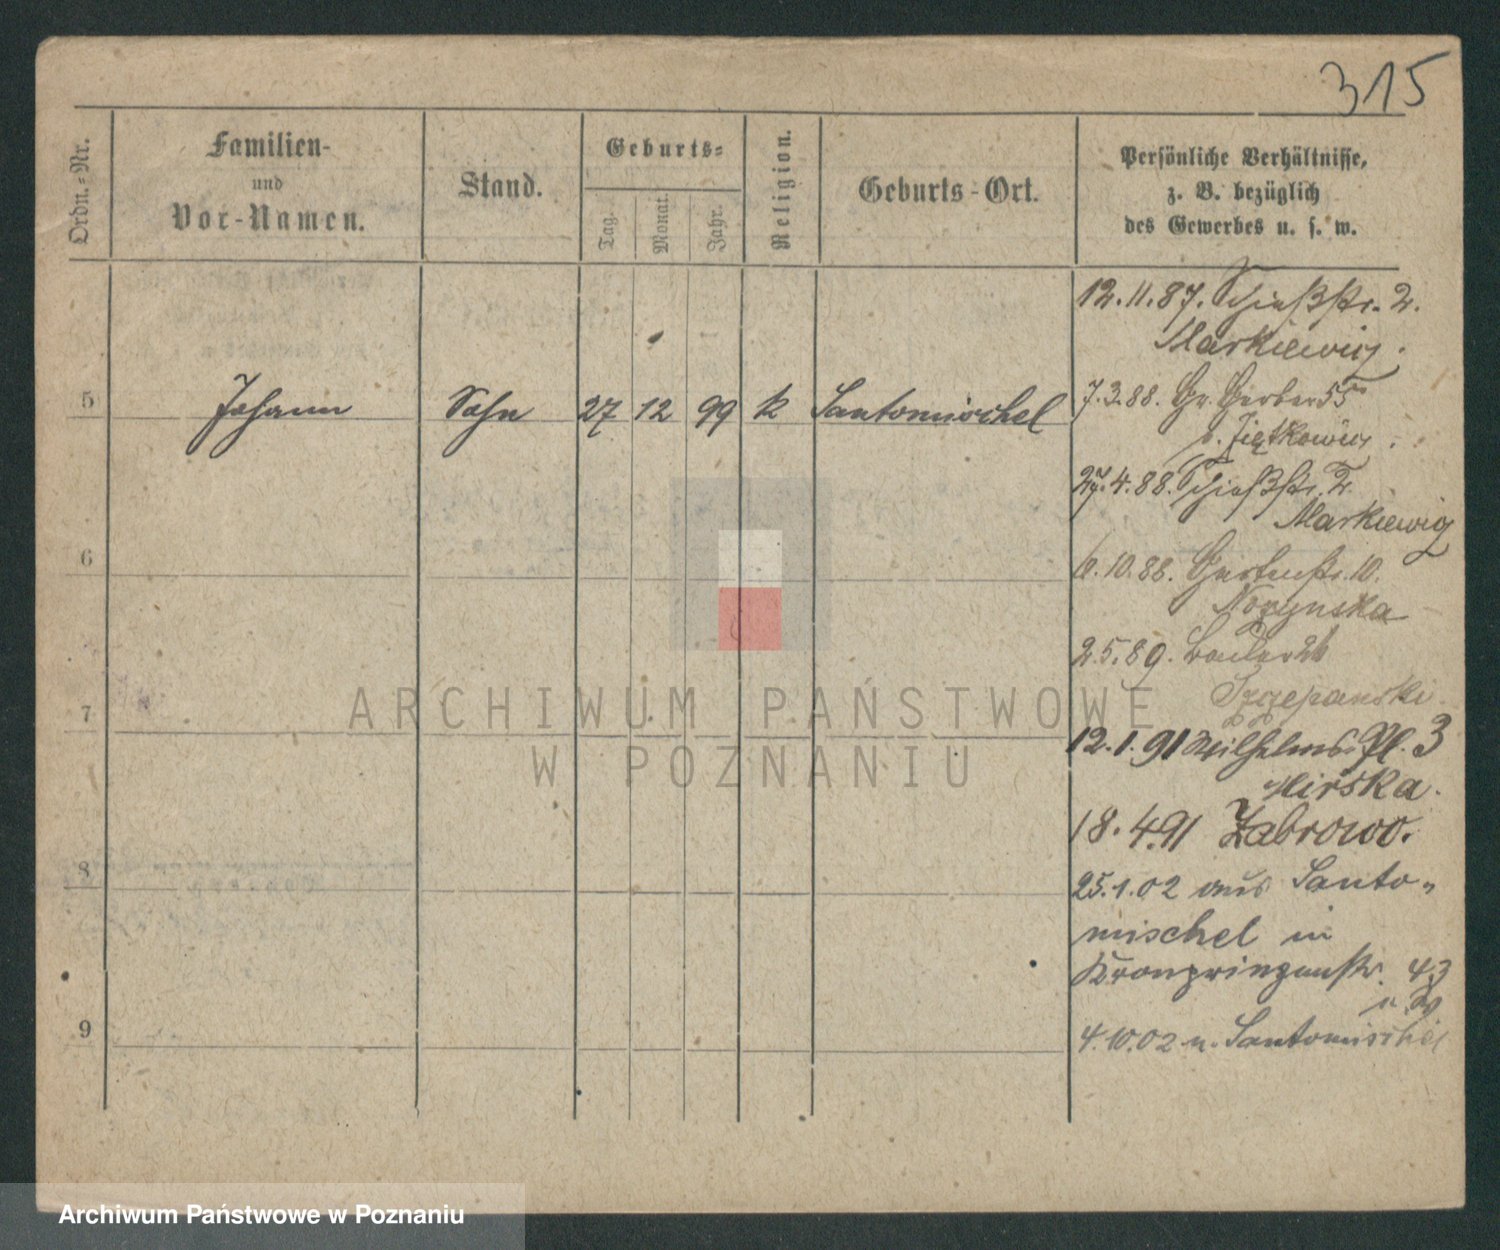 315
Ordn.-Nr.
Familien-
und
Vor-Namen.
Stand.
Geburts-
Tag.
Monat.
Jahr.
Religion.
Geburts-Ort.
Persönliche Verhältnisse,
z. B. bezüglich
des Gewerbes u. s. w.
5 Johann Sohn 27 12 99 k Santomischel
6
7
8
9
12.11.87. Schießstr. 2.
Markiewicz.
7.3.88. Gr. Gerber 55
b. Ziętkowicz.
27.4.88. Schießstr. 2.
Markiewicz
10.88. Gartenstr. 10.
Nozynska
2.5.89.
Szczepanski
12.1.91 Wilhelms Pl. 3
Mirska.
18.4.91 Zabrowo.
25.1.02 aus Santo-
mischel in
Kronprinzenstr. 43
4.10.02 n. Santomischel
ARCHIWUM PAŃSTWOWE
W POZNANIU
Archiwum Państwowe w Poznaniu